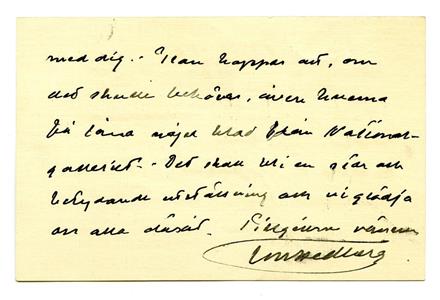 med dig. - Han hoppas att, om
det skulle behövas, även kunna
få låna något blad från National-
galleriet. - Det skall bli en glad och
betydande utställning och vi glädja
oss alla däråt. Tillgivne vännen